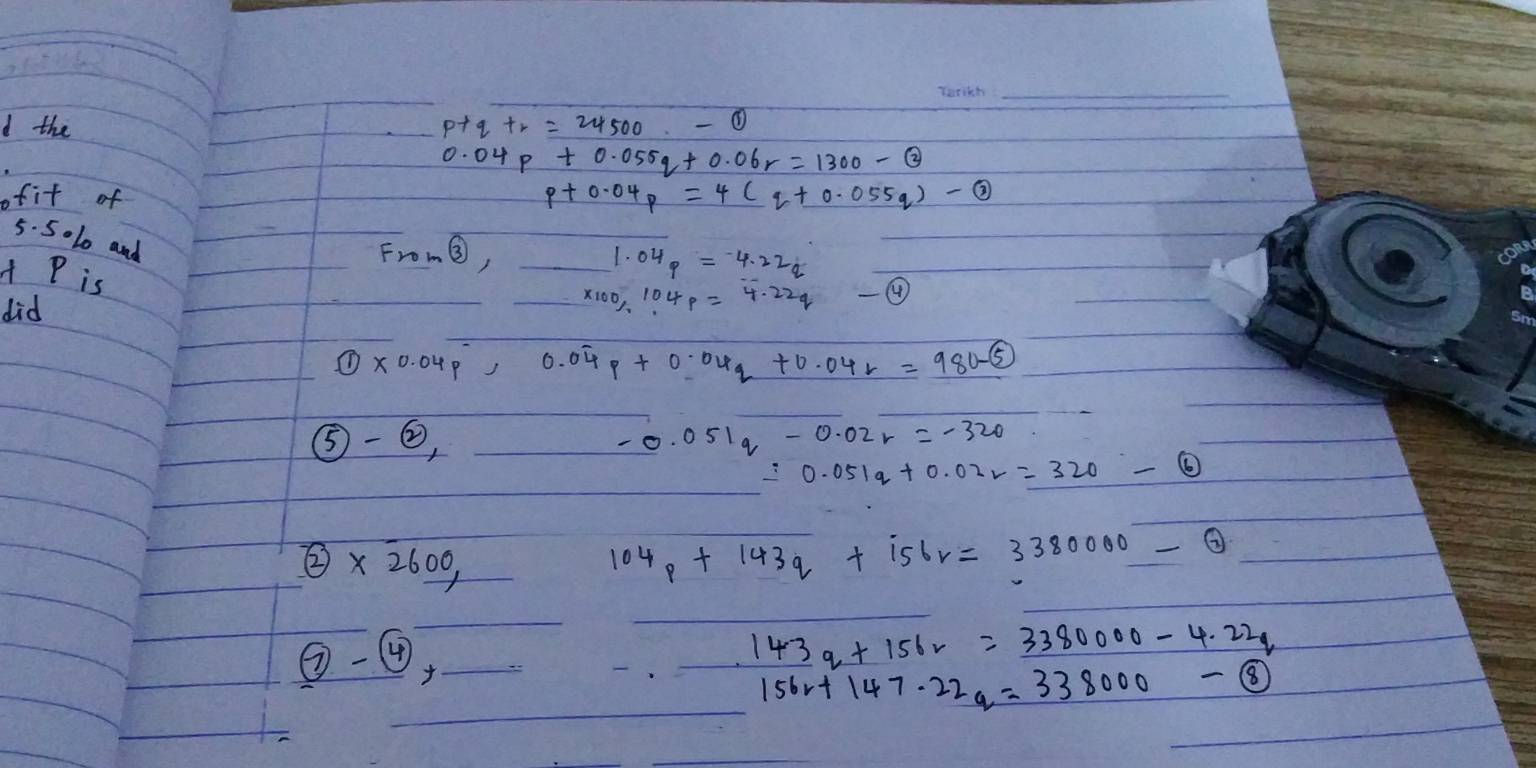 d the
.
ofit of
5.5% and
t P is
did
Tarikh :
p+q+r = 24500 - ①
0.04p + 0.055q + 0.06r = 1300 - ②
p + 0.04p = 4(q + 0.055q) - ③
From ③, 1.04p = 4.22q
x100, 104p = 4.22q - ④
① x 0.04p, 0.04p + 0.04q + 0.04r = 980 - ⑤
⑤ - ②, -0.051q - 0.02r = -320
= 0.051q + 0.02r = 320 - ⑥
② x 2600, 104p + 143q + 156r = 3380000 - ⑦
⑦ - ④, 143q + 156r = 3380000 - 4.22q
156r + 147.22q = 338000 - ⑧
CORR
5m